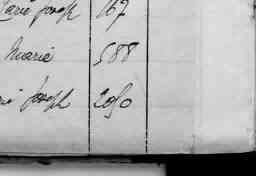 Marie Joseph 167
Marie 588
Joseph 2050